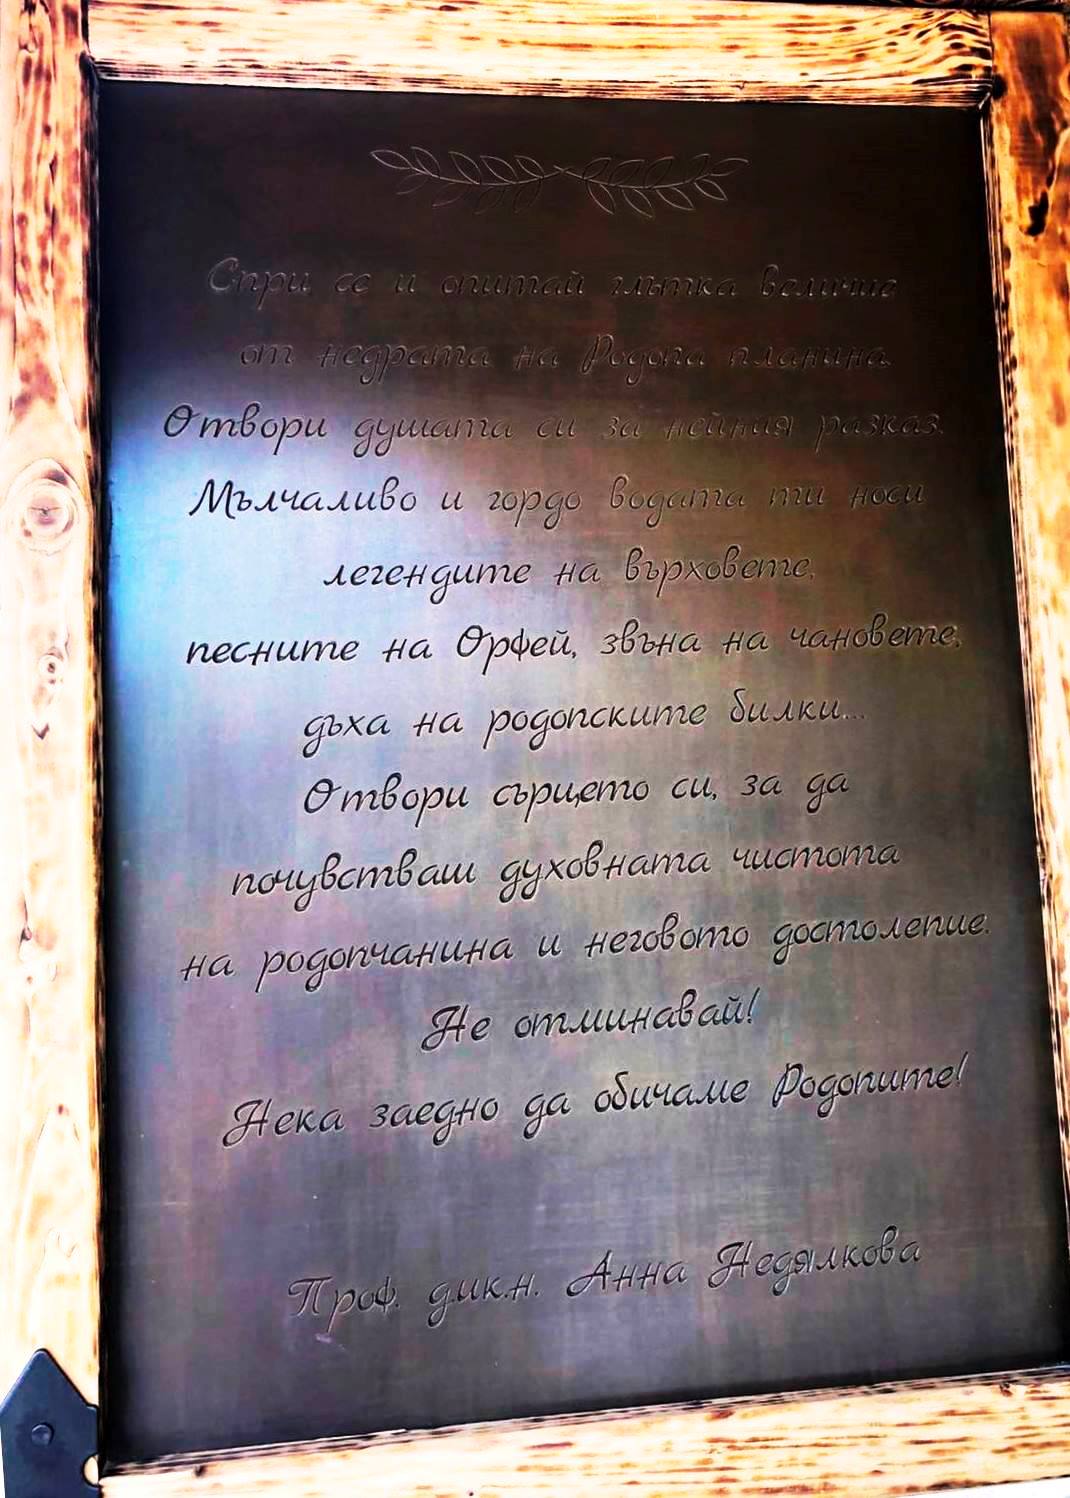 Спри се и опитай глътка величие
от недрата на Родопа планина.
Отвори душата си за нейния разказ.
Мълчаливо и гордо водата ти носи
легендите на върховете,
песните на Орфей, звъна на чановете,
дъха на родопските билки...
Отвори сърцето си, за да
почувстваш духовната чистота
на родопчанина и неговото достолепие.
Не отминавай!
Нека заедно да обичаме Родопите!
Проф. д.ик.н. Анна Недялкова